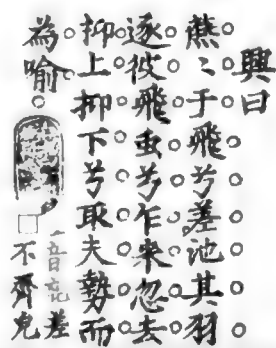 興曰
燕〻于飛兮差池其羽
逐彼飛虫兮乍来忽去
抑上抑下兮取夫勢而
為喻
音差
不齊皃